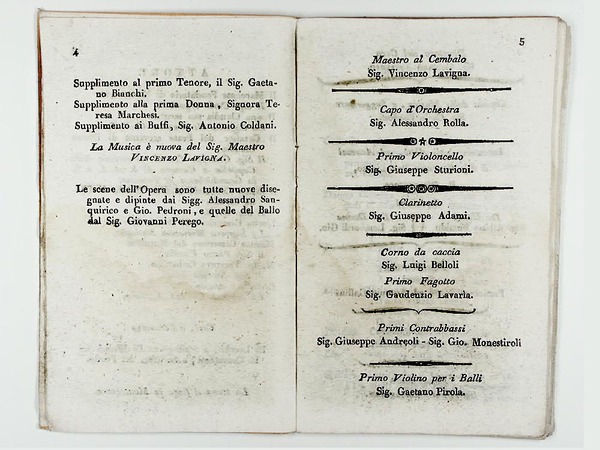 4
Supplimento al primo Tenore, il Sig. Gaeta-
no Bianchi.
Supplimento alla prima Donna, Signora Te-
resa Marchesi.
Supplimento ai Buffi, Sig. Antonio Coldani.
La Musica è nuova del Sig. Maestro
VINCENZO LAVIGNA.
Le scene dell'Opera sono tutte nuove dise-
gnate e dipinte dai Sigg. Alessandro San-
quirico e Gio. Pedroni, e quelle del Ballo
dal Sig. Giovanni Perego.
5
Maestro al Cembalo
Sig. Vincenzo Lavigna.
Capo d'Orchestra
Sig. Alessandro Rolla.
Primo Violoncello
Sig. Giuseppe Sturioni.
Clarinetto
Sig. Giuseppe Adami.
Corno da caccia
Sig. Luigi Belloli
Primo Fagotto
Sig. Gaudenzio Lavarìa.
Primi Contrabbassi
Sig. Giuseppe Andreoli - Sig. Gio. Monestiroli
Primo Violino per i Balli
Sig. Gaetano Pirola.